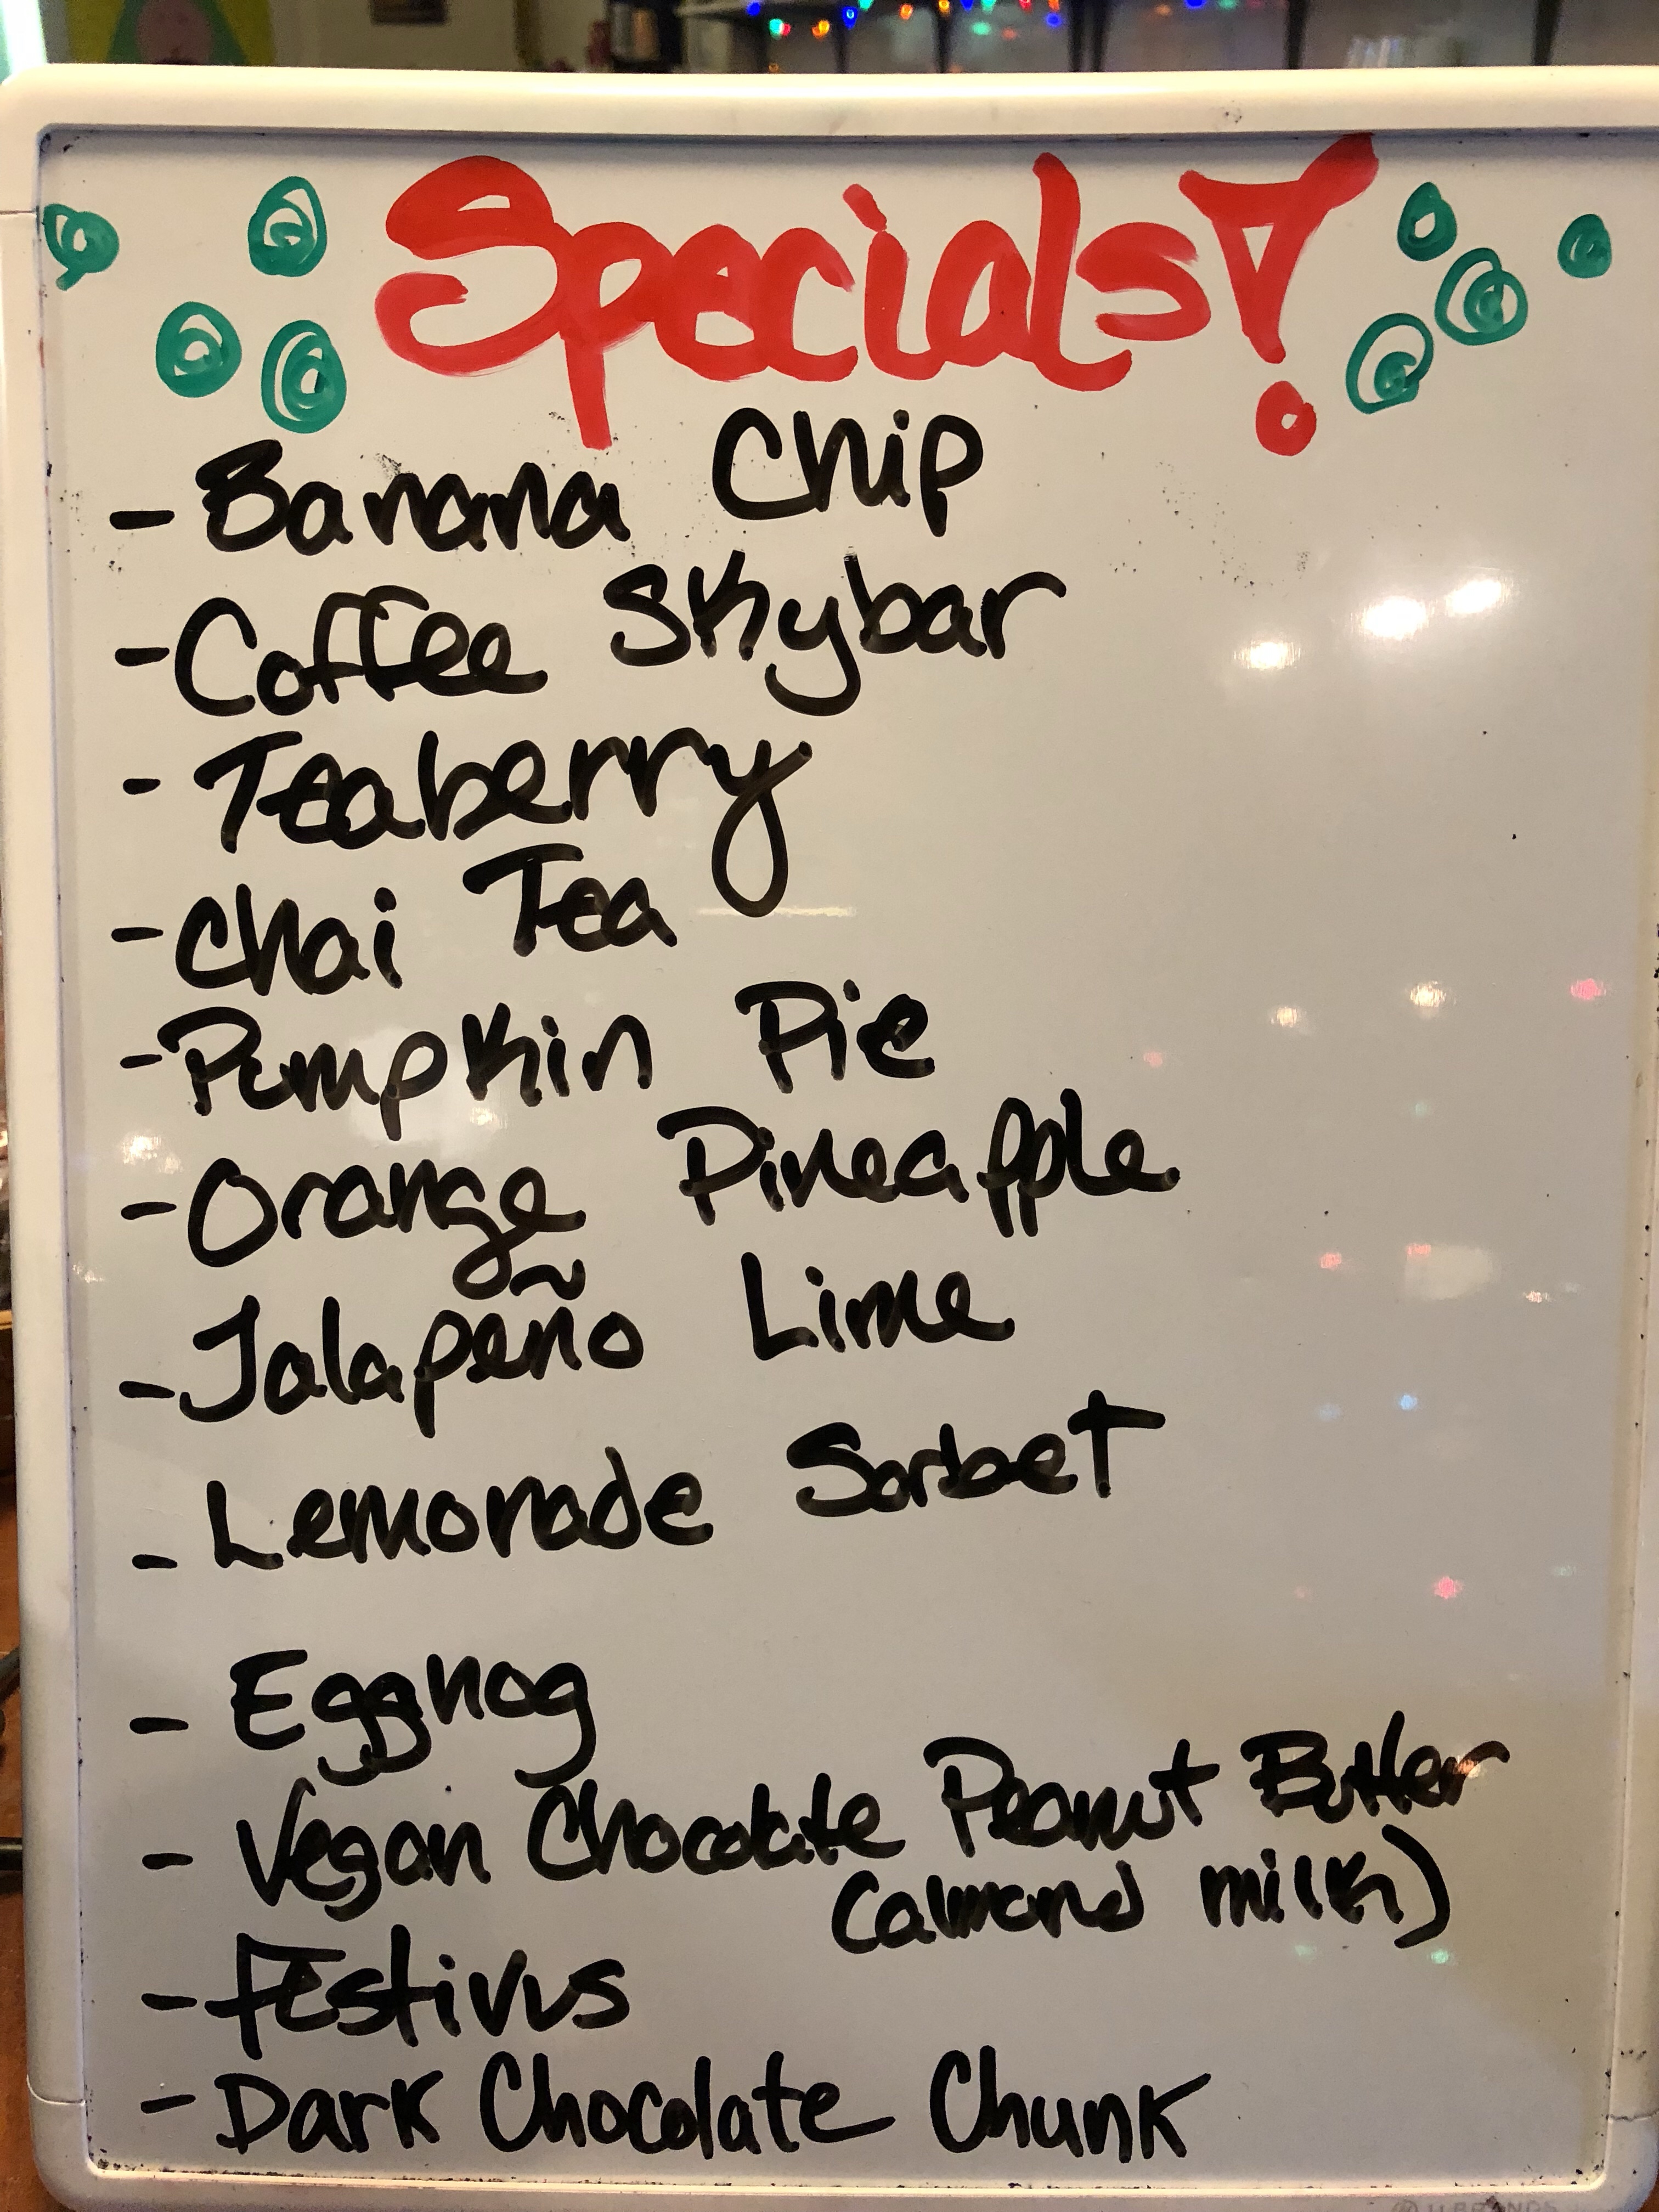 Specials!
- Banana Chip
- Coffee Skybar
- Teaberry
- Chai Tea
- Pumpkin Pie
- Orange Pineapple
- Jalapeño Lime
- Lemonade Sorbet
- Eggnog
- Vegan Chocolate Peanut Butter
(almond milk)
- Festivus
- Dark Chocolate Chunk